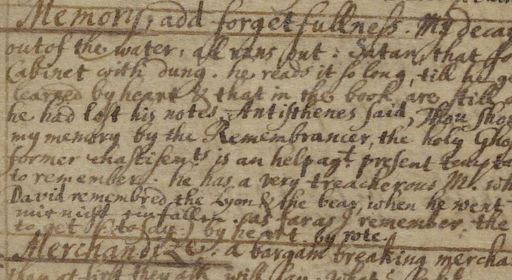 Memory, add forgetfullness. My decay
out of the water, all runs out: Satan, that fo
Cabinet with dung. he reads it so long, till he g
learned by heart & that in the book are still
he had lost his notes. Antisthenes said, Thou Shou
my memory by the Remembrancer, the holy Ghos
former chastisemts is an help agt present tempta
to remember. he has a very treacherous M. wh
David remembred the Lyon & the bear, when he went
as far as I remember. the
to get (to say) by heart, by rote.
Merchandize. a bargain breaking mercha
they ask